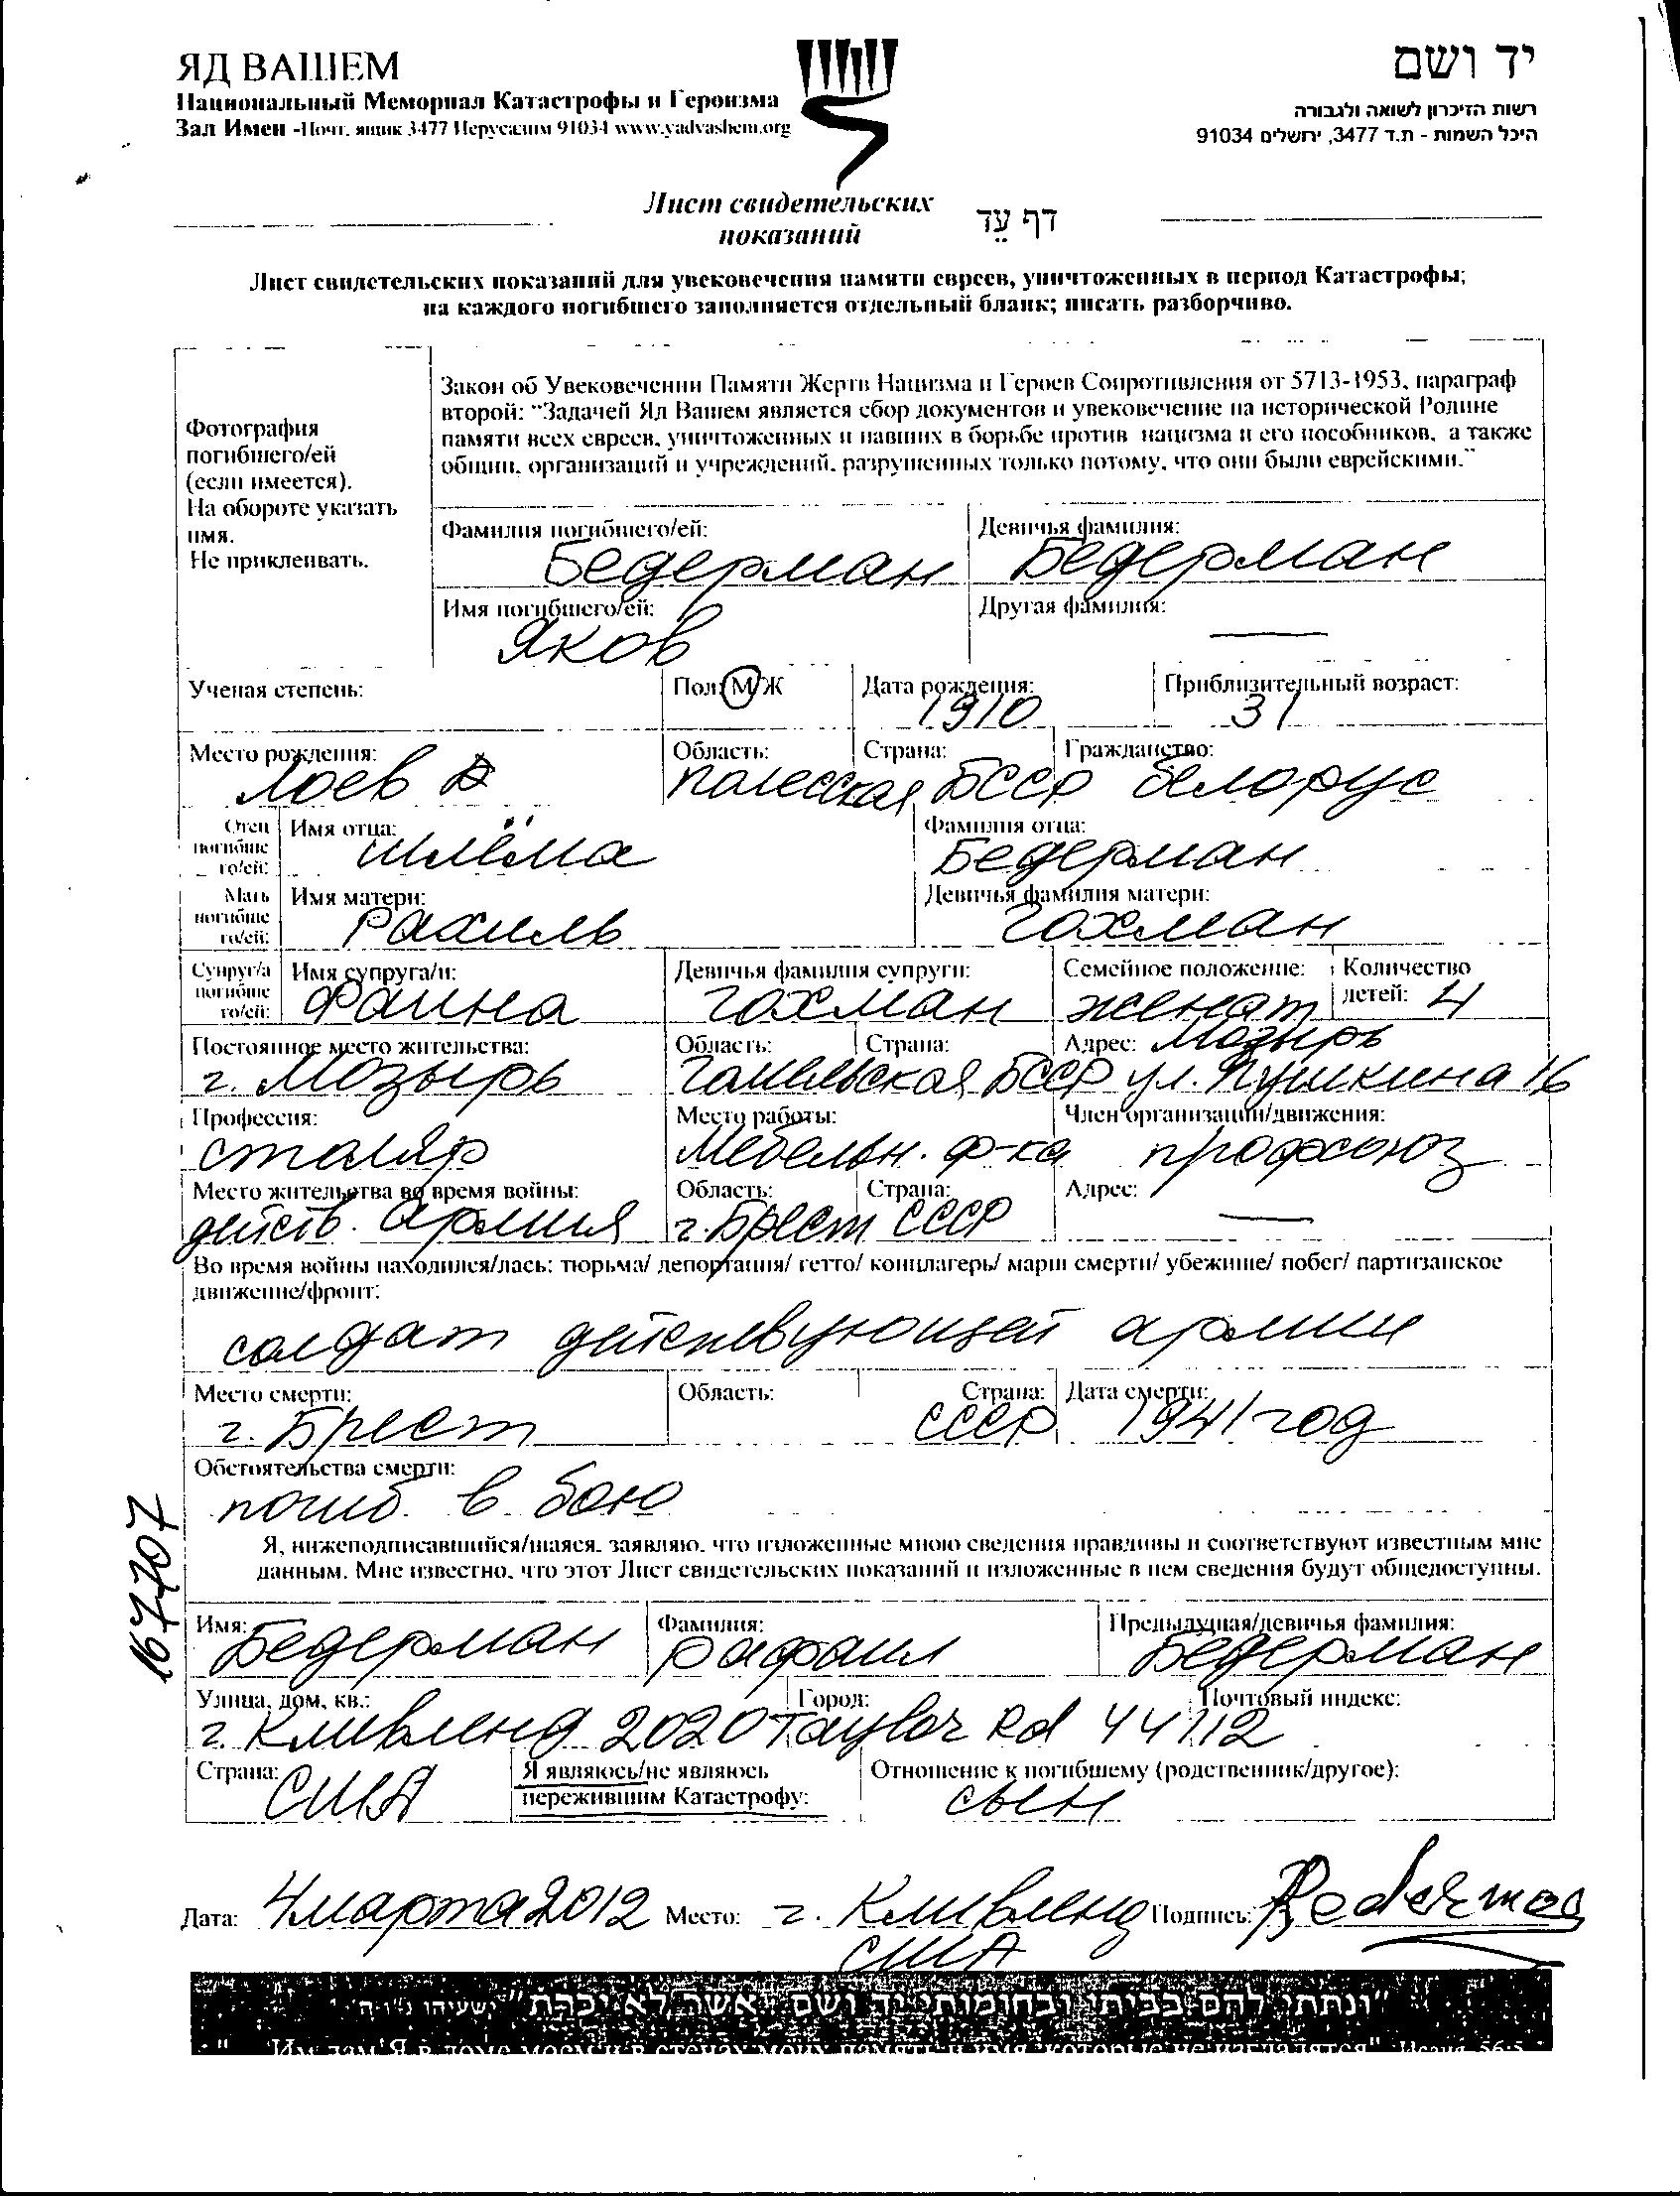 ЯД ВАШЕМ
Национальный Мемориал Катастрофы и Героизма
Зал Имен -Почт. ящик 3477 Иерусалим 91034 www.yadvashem.org
יד ושם
רשות הזיכרון לשואה ולגבורה
היכל השמות - ת.ד 3477, ירושלים 91034
Лист свидетельских
показаний
דף עֵד
Лист свидетельских показаний для увековечения памяти евреев, уничтоженных в период Катастрофы;
на каждого погибшего заполняется отдельный бланк; писать разборчиво.
Фотография
погибшего/ей
(если имеется).
На обороте указать
имя.
Не приклеивать.
Закон об Увековечении Памяти Жертв Нацизма и Героев Сопротивления от 5713-1953, параграф
второй: "Задачей Яд Вашем является сбор документов и увековечение на исторической Родине
памяти всех евреев, уничтоженных и павших в борьбе против нацизма и его пособников, а также
общин, организаций и учреждений, разрушенных только потому, что они были еврейскими."
Фамилия погибшего/ей: Девичья фамилия:
Бедерман Бедерман
Имя погибшего/ей: Другая фамилия:
Яков —
Ученая степень: Пол: М/Ж Дата рождения: Приблизительный возраст:
1910 31
Место рождения: Область: Страна: Гражданство:
Лоев Полесская БССР белорус
Отец погибше го/ей: Имя отца: Фамилия отца:
Шлёма Бедерман
Мать погибше го/ей: Имя матери: Девичья фамилия матери:
Рахиль Гохман
Супруг/а погибше го/ей: Имя супруга/и: Девичья фамилия супруги: Семейное положение: Количество детей: 4
Фаина Гохман женат
Постоянное место жительства: Область: Страна: Адрес: Мозырь
г. Мозырь Гомельская БССР ул. Пушкина 16
Профессия: Место работы: Член организации/движения:
столяр Мебельн. ф-ка профсоюз
Место жительства во время войны: Область: Страна: Адрес:
действ. армия г. Брест СССР —
Во время войны находился/лась: тюрьма/ депортация/ гетто/ концлагерь/ марш смерти/ убежище/ побег/ партизанское
движение/фронт:
солдат действующей армии
Место смерти: Область: Страна: Дата смерти:
г. Брест СССР 1941 год
Обстоятельства смерти:
погиб в бою
167707
Я, нижеподписавшийся/шаяся, заявляю, что изложенные мною сведения правдивы и соответствуют известным мне
данным. Мне известно, что этот Лист свидетельских показаний и изложенные в нем сведения будут общедоступны.
Имя: Фамилия: Предыдущая/девичья фамилия:
Бедерман Рафаил Бедерман
Улица, дом, кв.: Город: Почтовый индекс:
г. Кливленд 2020 Taylor Rd 44112
Страна: Я являюсь/не являюсь Отношение к погибшему (родственник/другое):
США пережившим Катастрофу: сын
Дата: 4 марта 2012 Место: г. Кливленд Подпись: Bederman
США
"ונתתי להם בביתי ובחומותי יד ושם... אשר לא יכרת" ישעיהו נ"ו ה
"Им дам Я в доме моем и в стенах моих память и имя, которые не изгладятся" Исаия 56:5